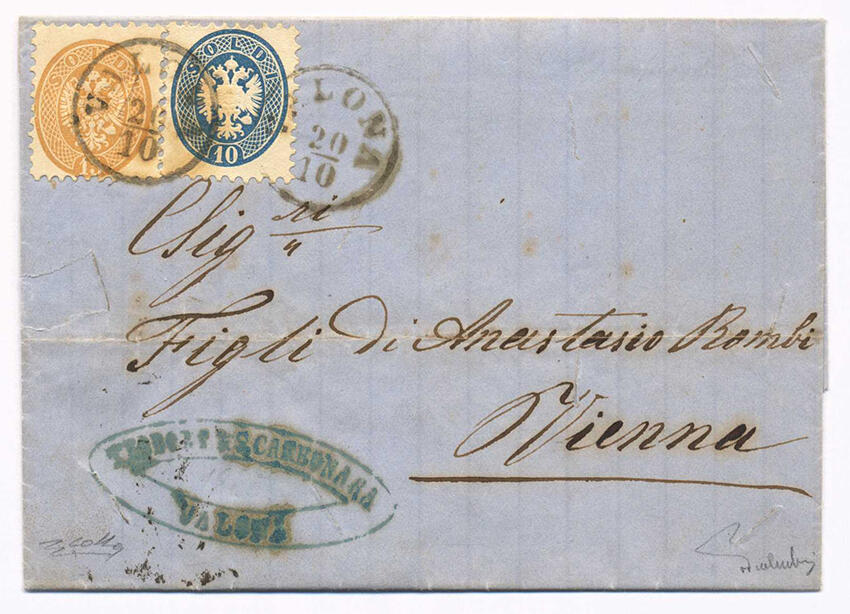 SOLDI
SOLDI
10
VALONA
20
10
Sig.ri
Figli di Anastasio Rombi
Vienna
CARBONARA
VALONA